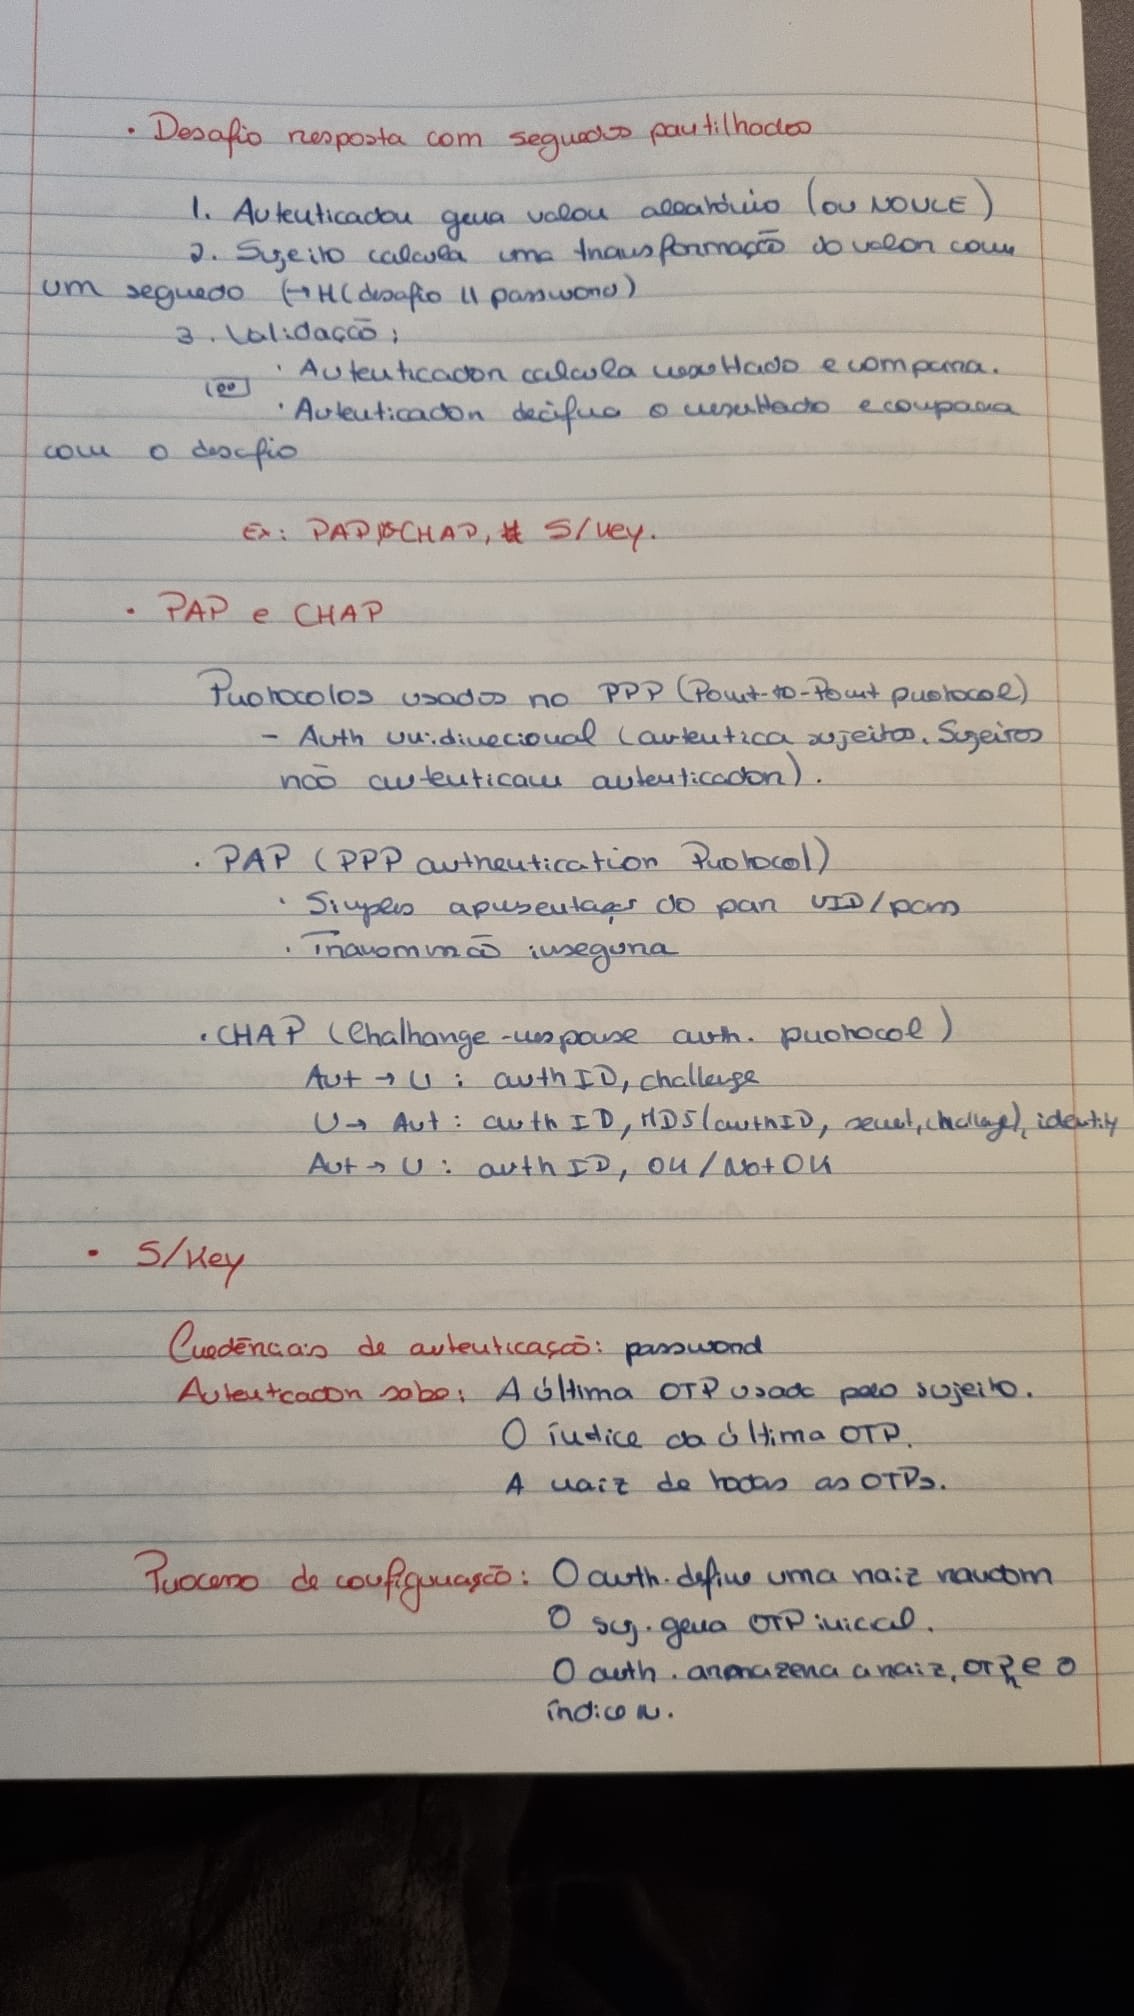 • Desafio resposta com segredos partilhados
1. Autenticador gera valor aleatório (ou NOUCE)
2. Sujeito calcula uma transformação do valor com
um segredo (→ H(desafio || password)
3. Validação:
• Autenticador calcula resultado e compara.
(ou)
• Autenticador decifra o resultado e compara
com o desafio
Ex: PAP, CHAP, S/key.
• PAP e CHAP
Protocolos usados no PPP (Point-to-Point protocol)
- Auth unidirecional (autentica sujeitos. Sujeitos
não autenticam autenticador).
• PAP (PPP authentication Protocol)
• Simples apresentaçao do par UID/pass
• Transmissão insegura
• CHAP (Chalhange-response auth. protocol)
Aut → U : auth ID, challenge
U → Aut : auth ID, MD5(authID, secret, challenge), identity
Aut → U : auth ID, OK / Not OK
• S/Key
Credênciais de autenticação: password
Autenticador sabe: A última OTP usada pelo sujeito.
O índice da última OTP.
A raiz de todas as OTPs.
Processo de configuração: O auth. define uma raiz random
O suj. gera OTP inicial.
O auth. armazena a raiz, OTPn e o
índice n.